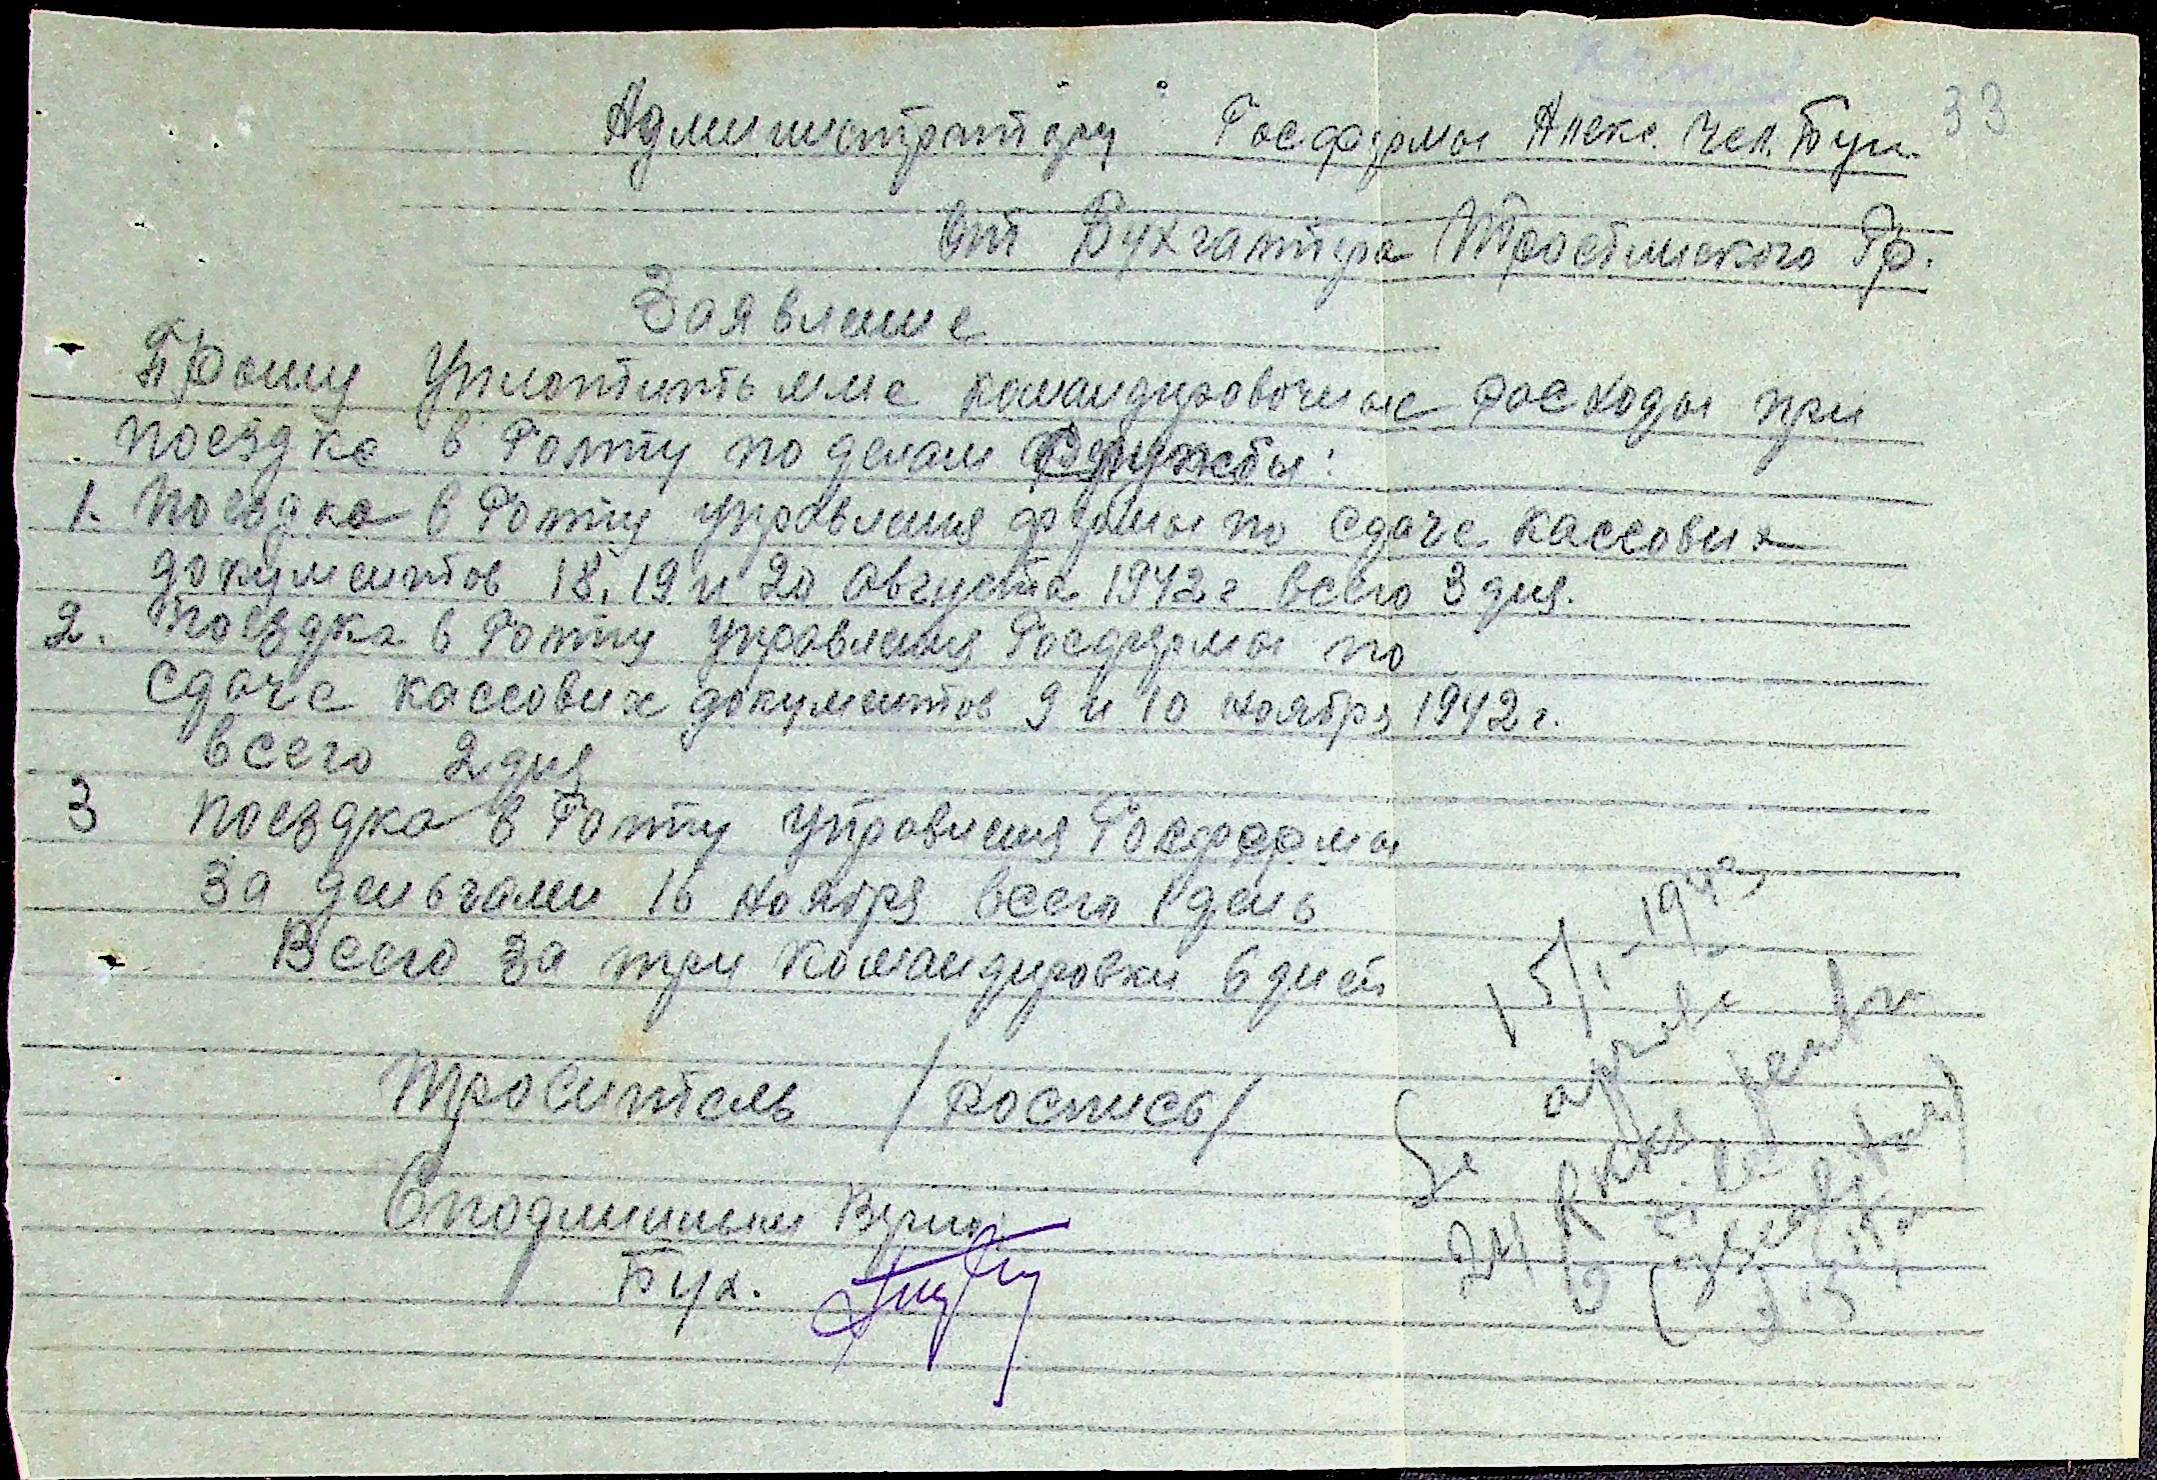 33
Администратору Госфермы Алекс. Чел. Бун.
От Бухгалтера Тростинского Гф.
Заявление
Прошу уплотить мне командировочные росходы при
поездке в Голту по делам Службы:
1. Поездка в Голту управления фермы по сдаче кассовых
документов 18, 19 и 20 августа 1942 г всего 3 дня.
2. поездка в Голту управления Госфермы по
сдаче кассових документов 9 и 10 ноября 1942 г.
всего 2 дня
3 поездка в Голту управления Госфермы
За деньгами 16 ноября всего 1 день
Всего за три командировки 6 дней
Проситель /роспись/
Сподлинным Верно:
Бух.
15/I-1943
Se aprobă
24 RKKS pentru
6 zile